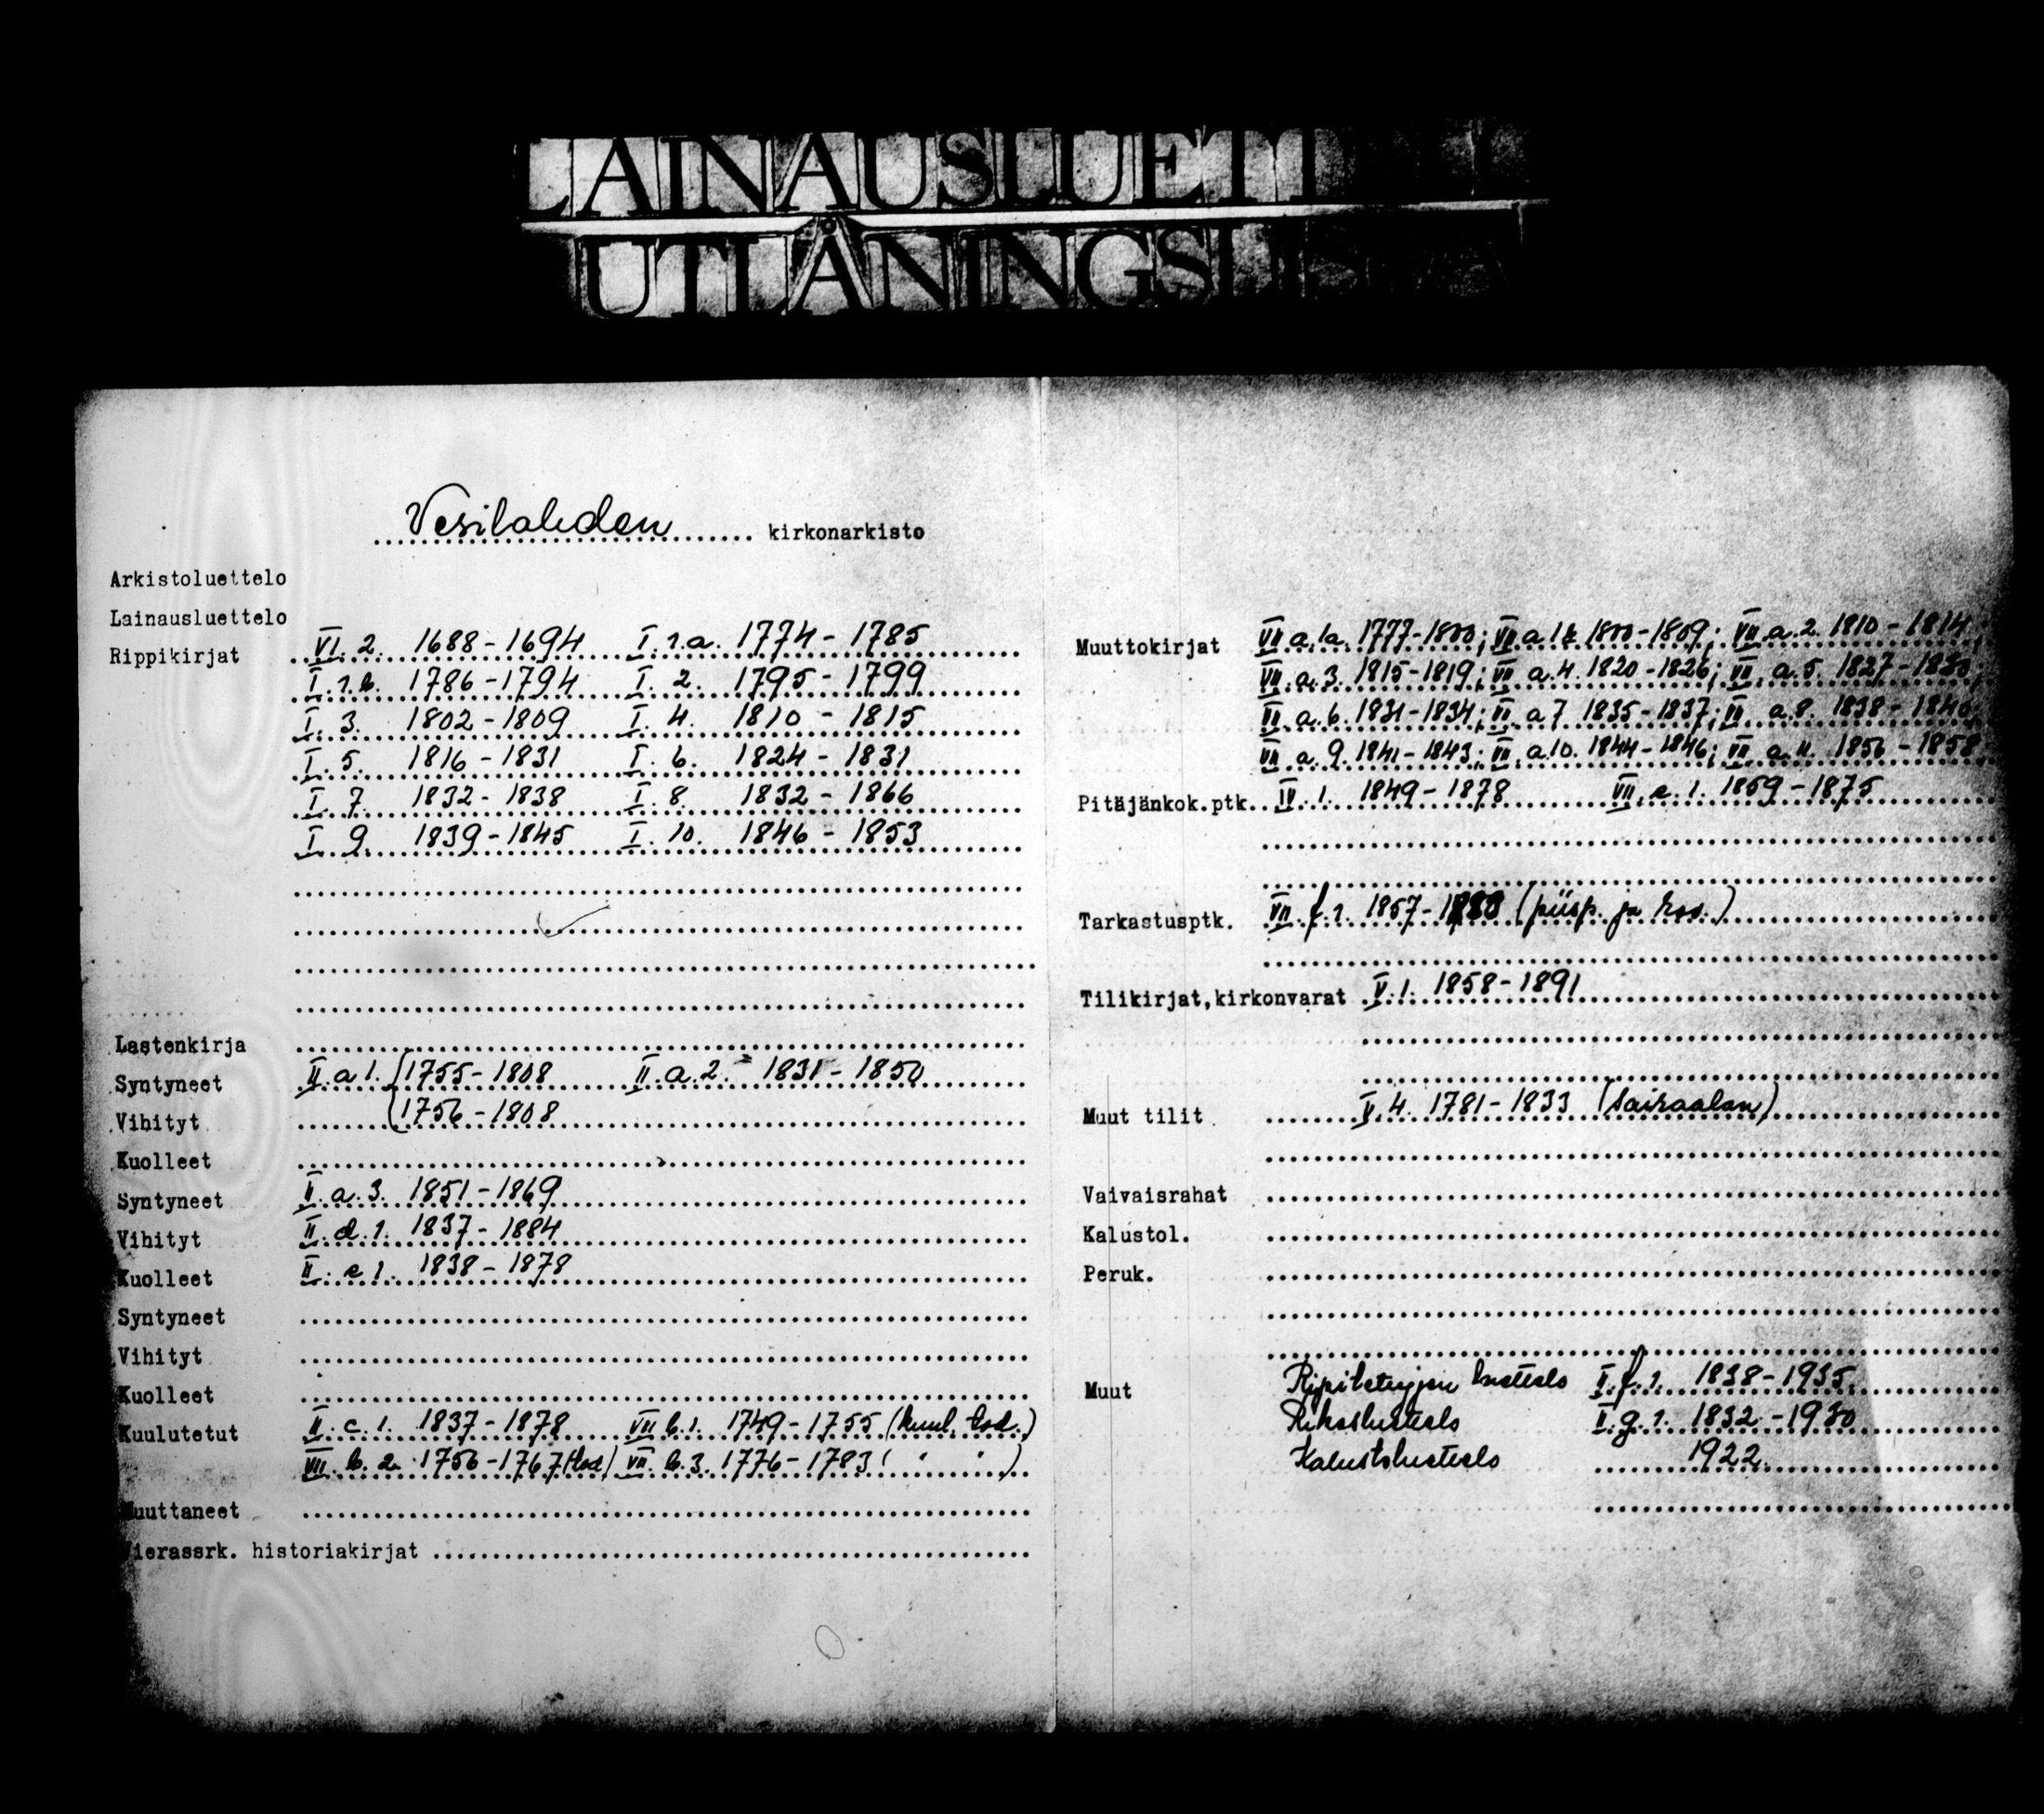 LAINAUSLUETT
UTLÅNINGSLIS
Vesilahden kirkonarkisto
Arkistoluettelo
Lainausluettelo
Rippikirjat VI. 2. 1688-1694 I. 1.a. 1774-1785
I. 1.b. 1786-1794 I. 2. 1795-1799
I. 3. 1802-1809 I. 4. 1810-1815
I. 5. 1816-1831 I. 6. 1824-1831
I. 7. 1832-1838 I. 8. 1832-1866
I. 9. 1839-1845 I. 10. 1846-1853
Lastenkirja
Syntyneet II. a 1. 1755-1808 II. a. 2. 1831-1850
Vihityt 1756-1808
Kuolleet
Syntyneet II. a. 3. 1851-1869
Vihityt II. d. 1. 1837-1884
Kuolleet II. e 1. 1838-1878
Syntyneet
Vihityt
Kuolleet
Kuulutetut II. c. 1. 1837-1878 VII b. 1. 1749-1755 (kuul. tod.)
VII. b. 2. 1756-1767 (tod) VII. b. 3. 1776-1783 ( " " )
Muuttaneet
Vierassrk. historiakirjat
Muuttokirjat VII a. 1a. 1777-1800; VII a 1b 1800-1809; VII. a. 2. 1810-1814;
VII. a. 3. 1815-1819; VII a. 4. 1820-1826; VII. a. 5. 1827-1830;
VII. a. 6. 1831-1834; VII. a 7. 1835-1837; VII a. 8. 1838-1840;
VII a. 9. 1841-1843; VII. a. 10. 1844-1846; VII a. 11. 1856-1858
Pitäjänkok.ptk. IV. 1. 1849-1878 VII. e. 1. 1859-1875
Tarkastusptk. VII. f. 1. 1857- (piisp. ja rov.)
Tilikirjat, kirkonvarat V. 1. 1858-1891
Muut tilit V. 4. 1781-1833 (sairaalan)
Vaivaisrahat
Kalustol.
Peruk.
Muut luettelo II. f. 1. 1838-1935
Rikosluettelo II. g. 1. 1832-1930
Kalustoluettelo 1922.